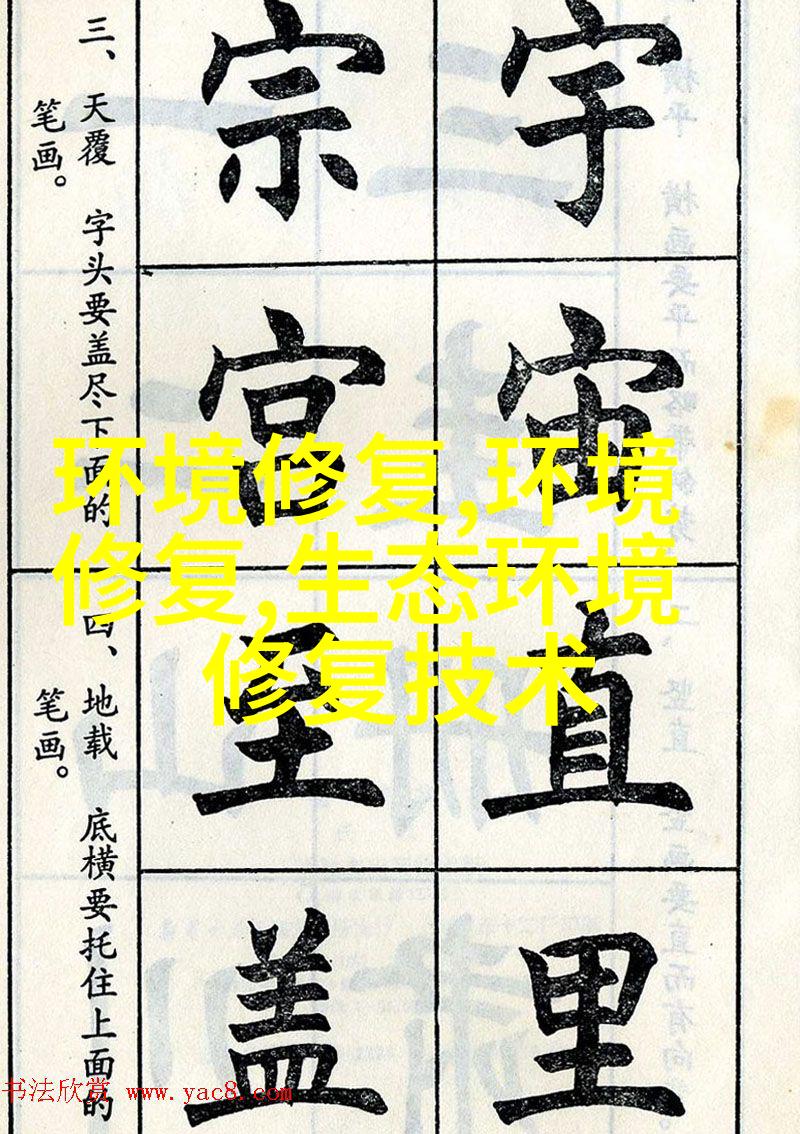 宇
宙
直
里
宗
宫
盖
三、天覆 字头要盖尽下面的
笔画。
四、地载 底横要托住上面的
笔画。
环境修复,环境
修复,生态环境
修复技术
书法欣赏 www.yac8.com